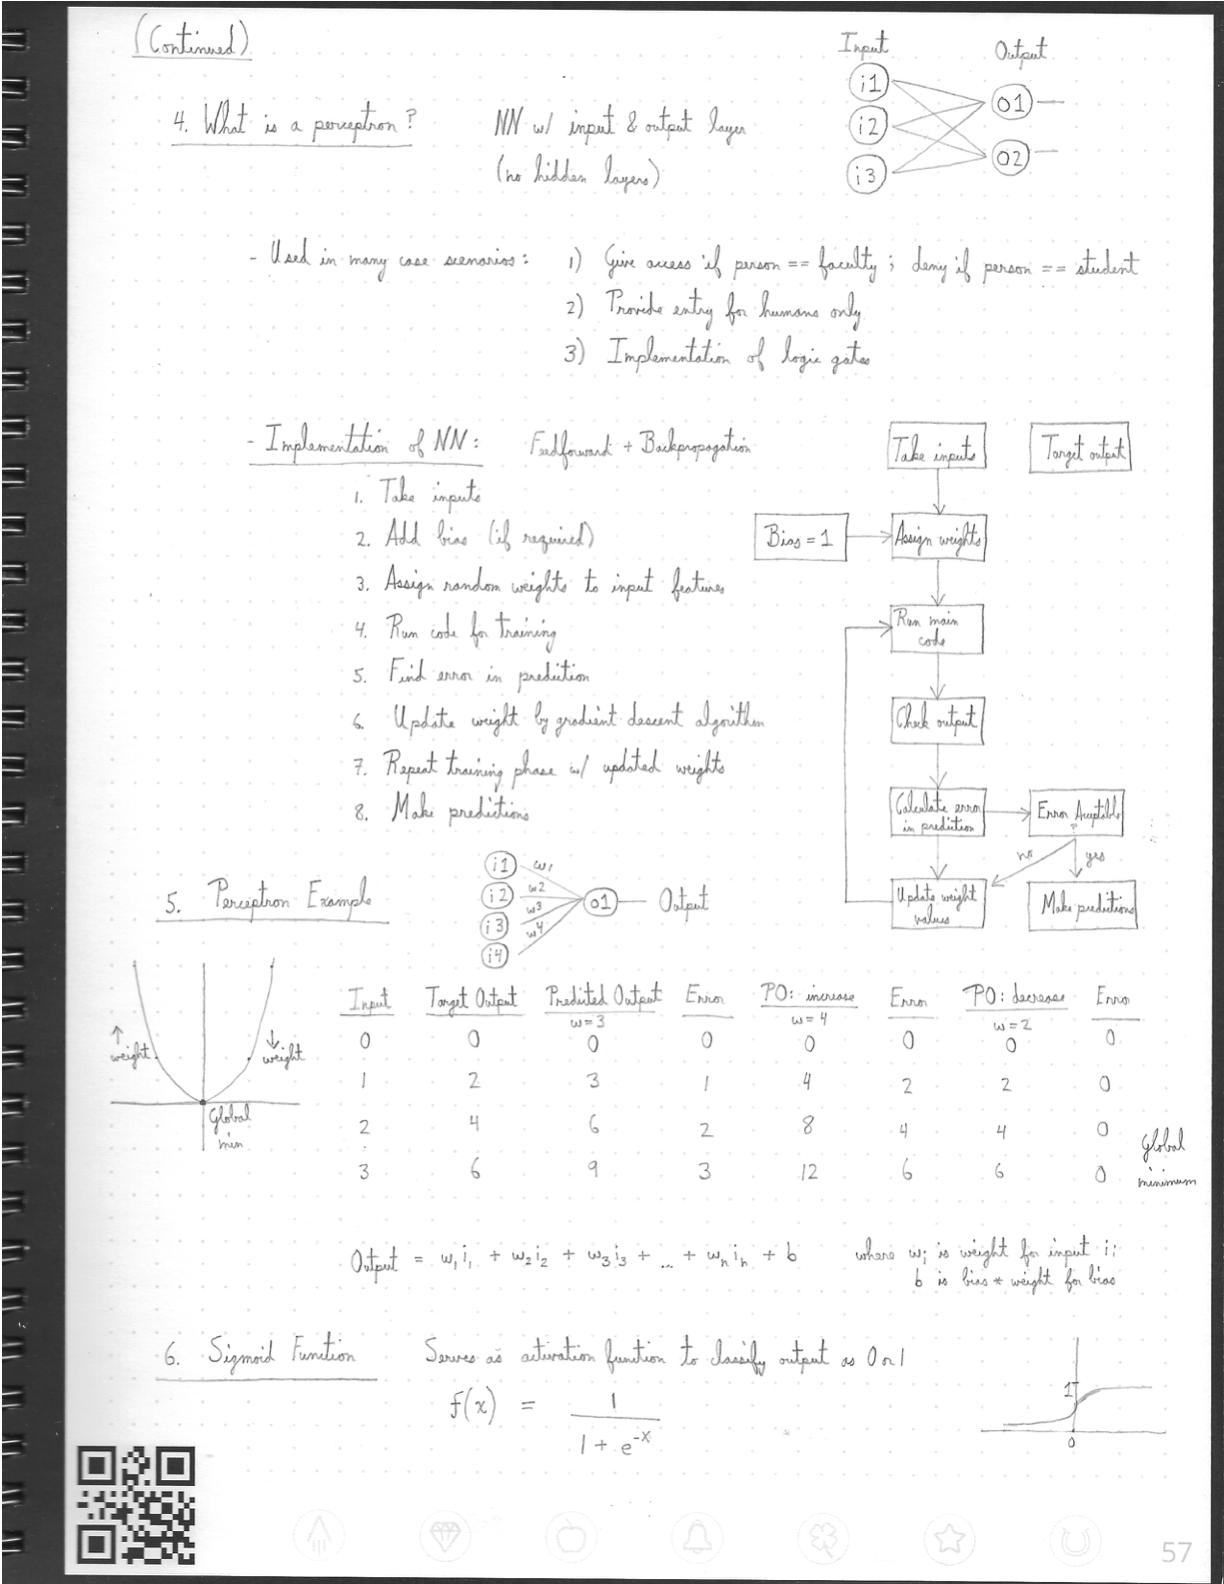 (Continued)
4. What is a perceptron?
NN w/ input & output layer
(no hidden layers)
Input
Output
i1
i2
i3
o1
o2
- Used in many case scenarios:
1) Give access if person == faculty; deny if person == student
2) Provide entry for humans only
3) Implementation of logic gates
- Implementation of NN: Feedforward + Backpropagation
1. Take inputs
2. Add bias (if required)
3. Assign random weights to input features
4. Run code for training
5. Find error in prediction
6. Update weight by gradient descent algorithm
7. Repeat training phase w/ updated weights
8. Make predictions
Take inputs
Target output
Bias = 1
Assign weights
Run main
code
Check output
Calculate error
in prediction
Error Acceptable
?
no
yes
Update weight
values
Make predictions
5. Perceptron Example
i1
i2
i3
i4
w1
w2
w3
w4
o1
Output
↑
weight
↓
weight
Global
min
Input Target Output Predicted Output Error PO: increase Error PO: decrease Error
w=3 w=4 w=2
0 0 0 0 0 0 0 0
1 2 3 1 4 2 2 0
2 4 6 2 8 4 4 0
3 6 9 3 12 6 6 0
Global
minimum
Output = w₁i₁ + w₂i₂ + w₃i₃ + ... + wₙiₙ + b where wᵢ is weight for input iᵢ
b is bias * weight for bias
6. Sigmoid Function Serves as activation function to classify output as 0 or 1
f(x) = 1
1 + e⁻ˣ
1
0
57